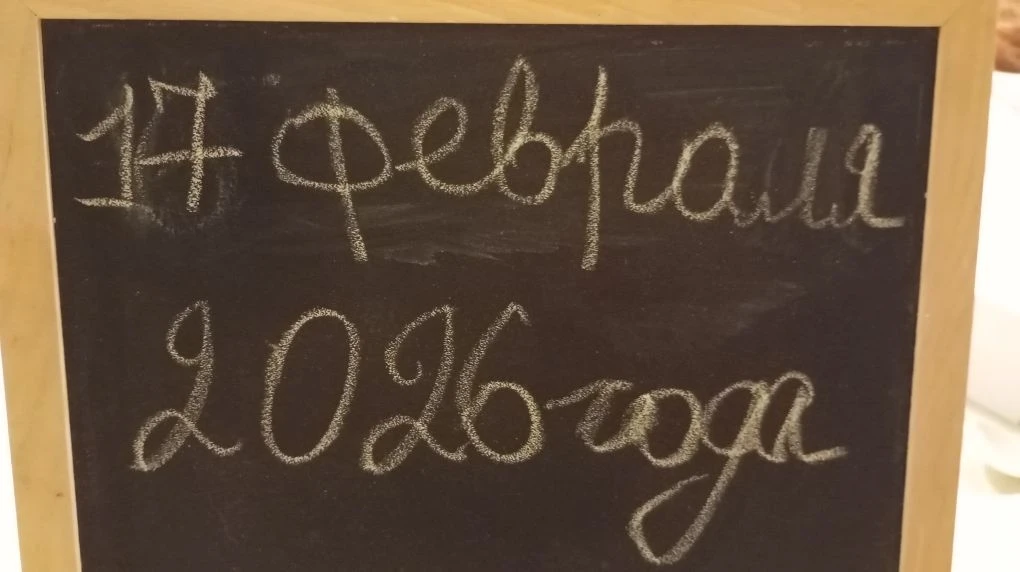 17 февраля
2026 года